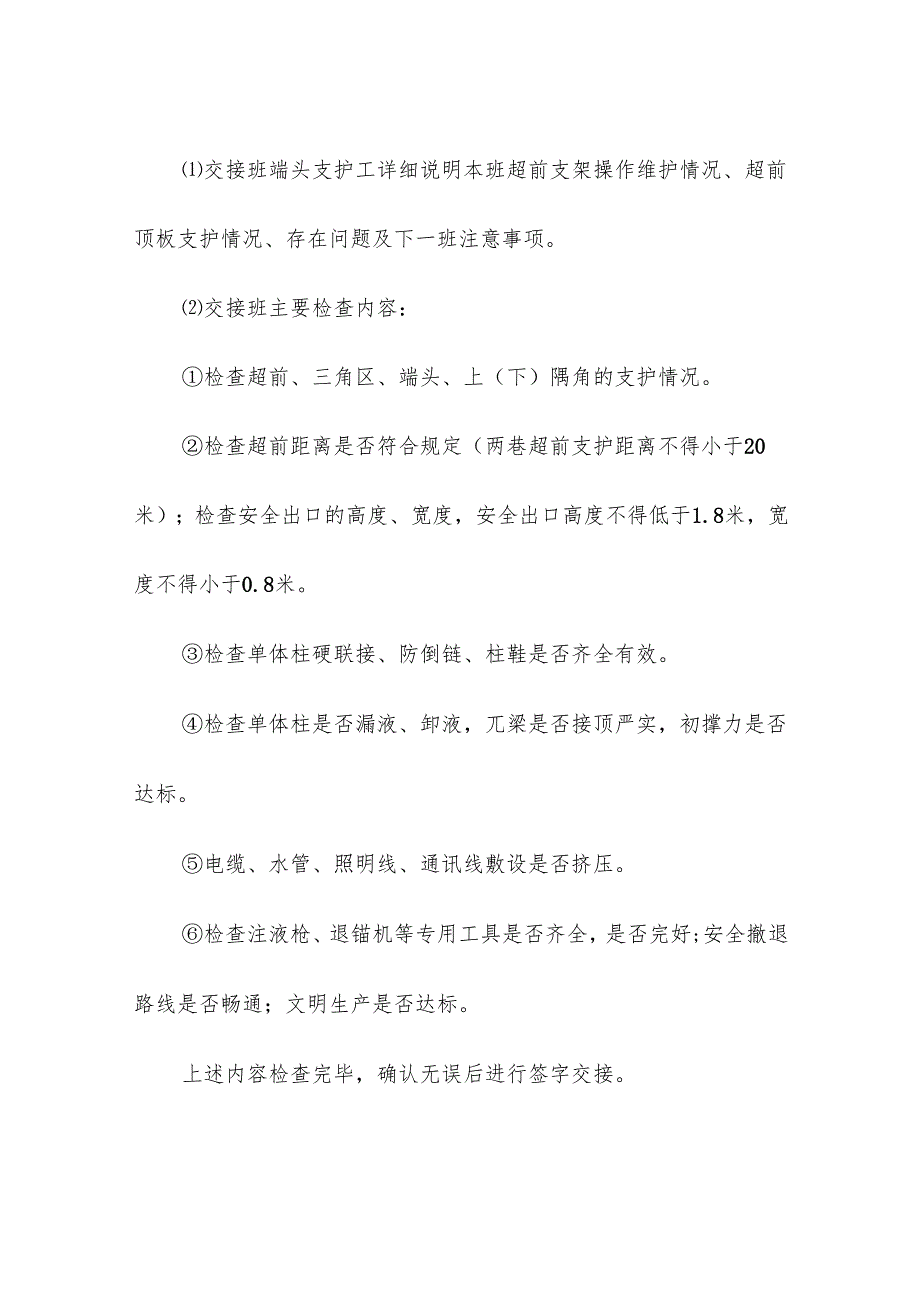 ⑴交接班端头支护工详细说明本班超前支架操作维护情况、超前
顶板支护情况、存在问题及下一班注意事项。
⑵交接班主要检查内容：
①检查超前、三角区、端头、上（下）隅角的支护情况。
②检查超前距离是否符合规定（两巷超前支护距离不得小于20
米）；检查安全出口的高度、宽度，安全出口高度不得低于1.8米，宽
度不得小于0.8米。
③检查单体柱硬联接、防倒链、柱鞋是否齐全有效。
④检查单体柱是否漏液、卸液，兀梁是否接顶严实，初撑力是否
达标。
⑤电缆、水管、照明线、通讯线敷设是否挤压。
⑥检查注液枪、退锚机等专用工具是否齐全，是否完好;安全撤退
路线是否畅通；文明生产是否达标。
上述内容检查完毕，确认无误后进行签字交接。